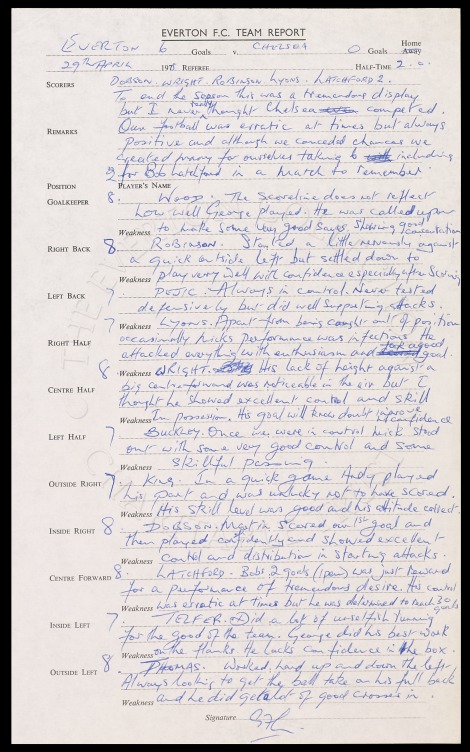 EVERTON F.C. TEAM REPORT
EVERTON 6 Goals v. CHELSEA 0 Goals Home Away
29TH APRIL 1978 REFEREE HALF-TIME 2.0.
SCORERS DOBSON. WRIGHT. ROBINSON. LYONS. LATCHFORD 2.
To end the season this was a tremendous display
but I never really thought Chelsea competed.
REMARKS Our football was erratic at times but always
positive and although we conceded chances we
created many for ourselves taking 6 including
2 for Bob Latchford in a match to remember.
POSITION PLAYER'S NAME
GOALKEEPER 8. WOOD. The Scoreline does not reflect
how well George played. He was called upon
Weakness to make some very good saves showing good concentration
RIGHT BACK 8. ROBINSON. Started a little nervously against
a quick outside left but settled down to
Weakness play very well with confidence especially after scoring
LEFT BACK 7. PEJIC. Always in control. Never tested
defensively but did well supporting attacks.
Weakness
RIGHT HALF 7 LYONS. Apart from being caught out of position
occasionally Micks performance was infectious. He
attacked everything with enthusiasm and a good goal.
CENTRE HALF 8. Weakness WRIGHT. His lack of height against a
big centre forward was noticeable in the air but I
thought he showed excellent control and skill
Weakness In possession. His goal will know doubt improve confidence
LEFT HALF 7 BUCKLEY. Once we were in control Mick stood
out with some very good control and some
Weakness skillful passing.
OUTSIDE RIGHT 7. KING. In a quick game Andy played
his part and was unlucky not to have scored.
Weakness His skill level was good and his attitude correct.
INSIDE RIGHT 8. DOBSON. Martin scored our 1st goal and
then played confidently and showed excellent
Weakness control and distribution in starting attacks.
CENTRE FORWARD 8. LATCHFORD. Bobs 2 goals (1 pen) was just reward
for a performance of tremendous desire. His control
Weakness was erratic at times but he was determined to reach 30 goals
INSIDE LEFT 7. TELFER. Did a lot of unselfish running
for the good of the team. George did his best work
Weakness on the flanks. He lacks confidence in the box.
OUTSIDE LEFT 8. THOMAS. Worked hard up and down the left
Always looking to get the ball take on his full back
Weakness and he did get a lot of good crosses in.
Signature